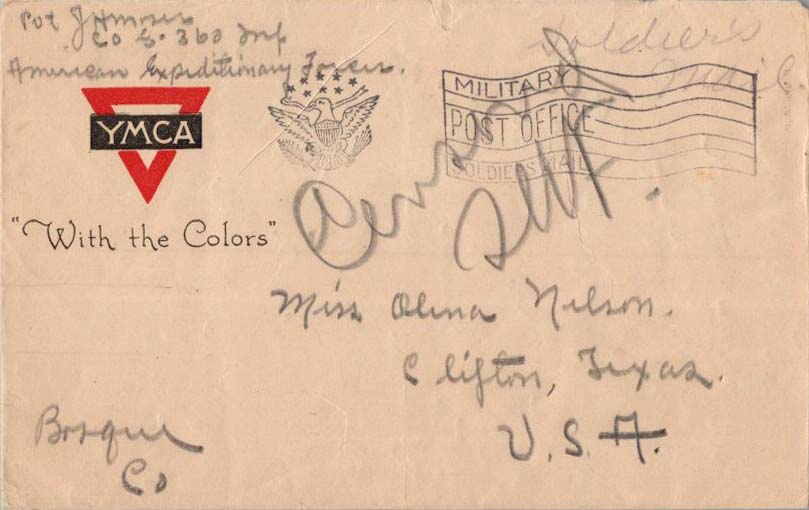 Pvt J Amoser
Co G. 360 Inf
American Expeditionary Forces.
Soldier's
Mail
MILITARY
POST OFFICE
SOLDIERS MAIL
YMCA
"With the Colors"
Miss Olina Nelson.
Clifton, Texas.
U.S.A.
Bosque
Co